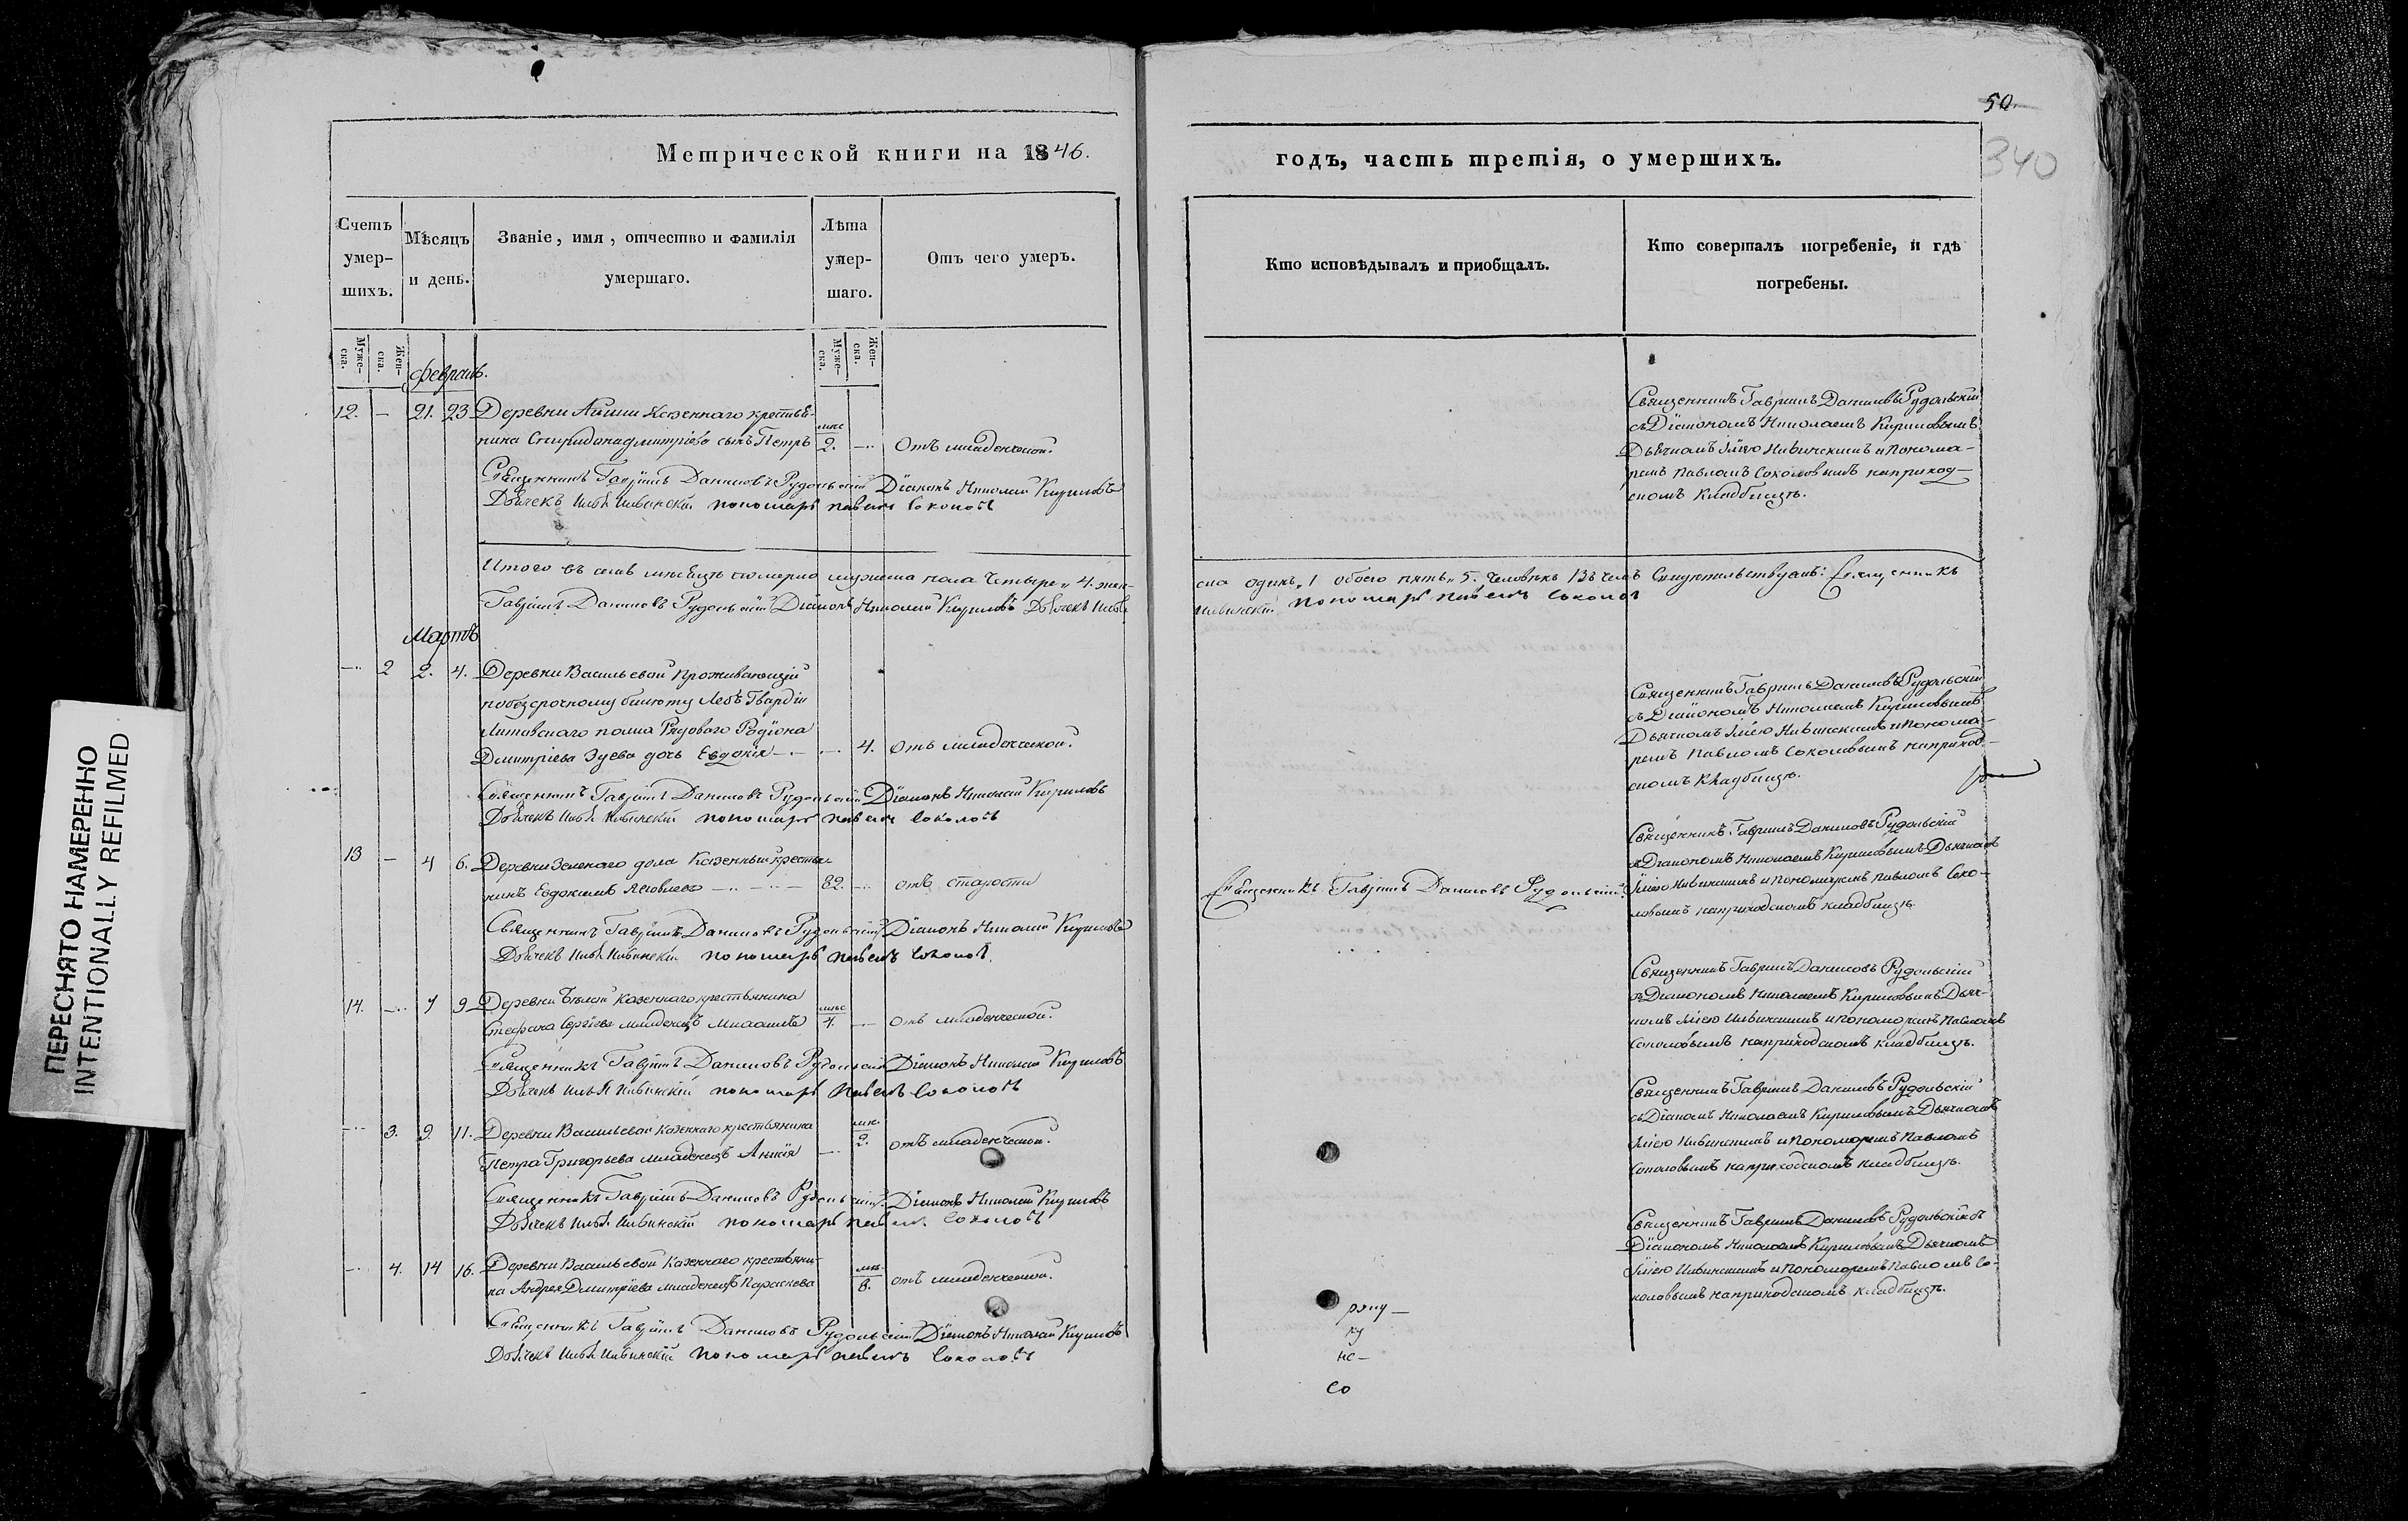 50
340
Метрической книги на 1846.
годъ, часть третія, о умершихъ.
Счетъ умер-шихъ.
Мѣсяцъ и день.
Званіе, имя, отчество и фамилія умершаго.
Лѣта умер-шаго.
Отъ чего умеръ.
Кто исповѣдывалъ и приобщалъ.
Кто совершалъ погребеніе, и гдѣ погребены.
Муже-ска.
Жен-ска.
Муже-ска.
Жен-ска.
Февраль.
12. — 21. 23 Деревни казеннаго крестья-
нина Спиридона Дмитріева сынъ Петръ 2. — Отъ младенческой.
Священникъ Гавріилъ Даниловъ Рудольскій
съ Діакономъ Николаемъ Кириловымъ
Дьячкомъ Ильею Нивинскимъ и понома-
ремъ Павломъ Соколовымъ наприход-
скомъ кладбищѣ.
Священникъ Гавріилъ Даниловъ Рудольскій Діаконъ Николай Кириловъ
Дьячекъ Илья Нивинскій пономарь Павелъ Соколовъ
Итого въ семъ мѣсяцѣ померло мужеска пола четыре „4. жен-
ска одинъ „1 обоего пять „5. человѣкъ Въ чемъ Свидѣтельствуемъ: Священникъ
Гавріилъ Даниловъ Рудольскій Діаконъ Николай Кириловъ Дьячекъ Илья
Нивинскій пономарь Павелъ Соколовъ
Мартъ
— 2 2. 4. Деревни Васильевой Проживающій
по безсрочному билету Лебъ Гвардіи
Литовскаго полка Рядоваго Родіона
Дмитріева Зуева дочь Евдокія — — 4. Отъ младенческой.
Священникъ Гавріилъ Даниловъ Рудольскій
съ Діакономъ Николаемъ Кириловымъ
Дьячкомъ Ильею Нивинскимъ и понома-
ремъ Павломъ Соколовымъ наприход-
скомъ кладбищѣ.
Священникъ Гавріилъ Даниловъ Рудольскій Діаконъ Николай Кириловъ
Дьячекъ Илья Нивинскій пономарь Павелъ Соколовъ
13 — 4 6. Деревни Зеленаго дола Казенный крестья-
нинъ Евдокимъ Яковлевъ — 82. — отъ старости
Священникъ Гавріилъ Даниловъ Рудольскій.
Священникъ Гавріилъ Даниловъ Рудольскій
съ Діакономъ Николаемъ Кириловымъ Дьячкомъ
Ильею Нивинскимъ и пономаремъ Павломъ Соко-
ловымъ наприходскомъ кладбищѣ.
Священникъ Гавріилъ Даниловъ Рудольскій Діаконъ Николай Кириловъ
Дьячекъ Илья Нивинскій пономарь Павелъ Соколовъ.
14. — 7 9 Деревни Казеннаго крестьянина
Стефана Сергіева младенецъ Михаилъ 4. — отъ младенческой.
Священникъ Гавріилъ Даниловъ Рудольскій
съ Діакономъ Николаемъ Кириловымъ Дьяч-
комъ Ильею Нивинскимъ и пономаремъ Павломъ
Соколовымъ наприходскомъ кладбищѣ.
Священникъ Гавріилъ Даниловъ Рудольскій Діаконъ Николай Кириловъ
Дьячекъ Илья Нивинскій пономарь Павелъ Соколовъ
— 3. 9. 11. Деревни Васильевой Казеннаго крестьянина
Петра Григорьева младенецъ — 2. отъ младенческой.
Священникъ Гавріилъ Даниловъ Рудольскій
съ Діакономъ Николаемъ Кириловымъ Дьячкомъ
Ильею Нивинскимъ и пономаремъ Павломъ
Соколовымъ наприходскомъ кладбищѣ.
Священникъ Гавріилъ Даниловъ Рудольскій Діаконъ Николай Кириловъ
Дьячекъ Илья Нивинскій пономарь Павелъ Соколовъ
— 4. 14 16. Деревни Васильевой Казеннаго крестьяни-
на Андрея Дмитріева младенецъ Параскева 8. отъ младенческой.
Священникъ Гавріилъ Даниловъ Рудольскій съ
Діакономъ Николаемъ Кириловымъ Дьячкомъ
Ильею Нивинскимъ и пономаремъ Павломъ Со-
коловымъ наприходскомъ кладбищѣ.
Священникъ Гавріилъ Даниловъ Рудольскій Діаконъ Николай Кириловъ
Дьячекъ Илья Нивинскій пономарь Павелъ Соколовъ
ряну—
ку
не—
со
ПЕРЕСНЯТО НАМЕРЕННО
INTENTIONALLY REFILMED